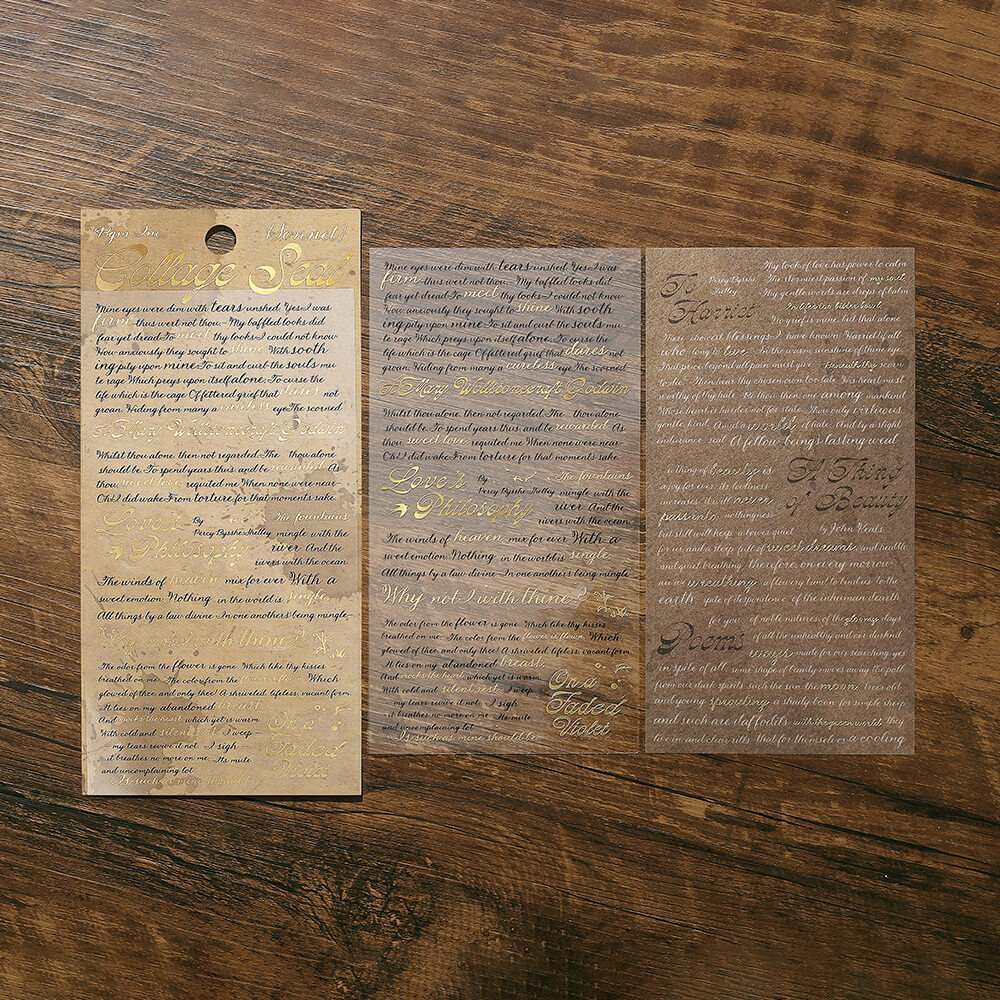 Pgm Inc.
(Sonnet)
Collage Seal
Mine eyes were dim with tears unshed Yes I was
firm—thus wert not thou.—My baffled looks did
fear yet dread To meet thy looks—I could not know
How anxiously they sought to shine With sooth
ing pity upon mine. To sit and curb the souls mu
te rage Which preys upon itself alone. To curse the
life which is the cage Of fettered grief that dares not
groan. Hiding from many a careless eye The scorned
Mary Wollstonecraft Godwin
Whilst thou alone, then not regarded. The thou alone
should be. To spend years thus and be rewarded As
thou, sweet love, requited me When none were near—
Oh! I did wake From torture for that moments sake.
Love's
Philosophy
By
Percy Bysshe Shelley
The fountains
mingle with the
river And the
rivers with the ocean.
The winds of heaven mix for ever With a
sweet emotion; Nothing in the world is single;
All things by a law divine In one anothers being mingle—
Why not I with thine?
The odor from the flower is gone Which like thy kisses
breathed on me. The color from the flower is flown Which
glowed of thee and only thee! A shriveled, lifeless, vacant form
It lies on my abandoned breast,
And mocks the heart which yet is warm
With cold and silent rest I weep
my tears revive it not I sigh
it breathes no more on me. Its mute
and uncomplaining lot
Is such as mine should be.
On a
Faded
Violet
Mine eyes were dim with tears unshed Yes I was
firm—thus wert not thou.—My baffled looks did
fear yet dread To meet thy looks—I could not know
How anxiously they sought to shine With sooth
ing pity upon mine. To sit and curb the souls mu
te rage Which preys upon itself alone. To curse the
life which is the cage Of fettered grief that dares not
groan. Hiding from many a careless eye The scorned
Mary Wollstonecraft Godwin
Whilst thou alone, then not regarded. The thou alone
should be. To spend years thus, and be rewarded As
thou, sweet love, requited me When none were near—
Oh! I did wake From torture for that moments sake.
Love's
Philosophy
By
Percy Bysshe Shelley
The fountains
mingle with the
river And the
rivers with the ocean.
The winds of heaven mix for ever With a
sweet emotion; Nothing in the world is single;
All things by a law divine In one anothers being mingle—
Why not I with thine?
The odor from the flower is gone Which like thy kisses
breathed on me. The color from the flower is flown Which
glowed of thee and only thee! A shriveled, lifeless, vacant form
It lies on my abandoned breast,
And mocks the heart which yet is warm
With cold and silent rest I weep
my tears revive it not I sigh
it breathes no more on me. Its mute
and uncomplaining lot
Is such as mine should be.
On a
Faded
Violet
To
Harriet
Percy Bysshe
Shelley
Thy look of love has power to calm
The stormiest passion of my soul
Thy gentle words are drops of balm
In life's too bitter bowl
No grief is mine, but that alone
These choicest blessings I have known Harriet! if all
who long to live In the warm sunshine of thine eye
That price beyond all pain must give Beneath thy scorn
to die Then hear thy chosen own too late His heart most
worthy of thy hate. Be thou, then one among mankind
Whose heart is harder not for state Thou only virtuous,
gentle, kind Amid a world of hate. And by a slight
endurance seal A fellow being's lasting weal
A Thing
of Beauty
by John Keats
a thing of beauty is
a joy for ever its loveliness
increases; it will never
pass into nothingness
but still will keep a bower quiet
for us, and a sleep full of sweet dreams and health
and quiet breathing therefore, on every morrow
are we wreathing a flowery band to bind us to the
earth spite of despondence, of the inhuman dearth
Poems
of noble natures, of the gloomy days
of all the unhealthy and oer darkened
ways made for our searching yes
in spite of all, some shape of beauty moves away the pall
from our dark spirits such the sun the moon trees old
and young sprouting a shady boon for simple sheep
and such are daffodils with the green world they
live in and clear rills that for themselves a cooling